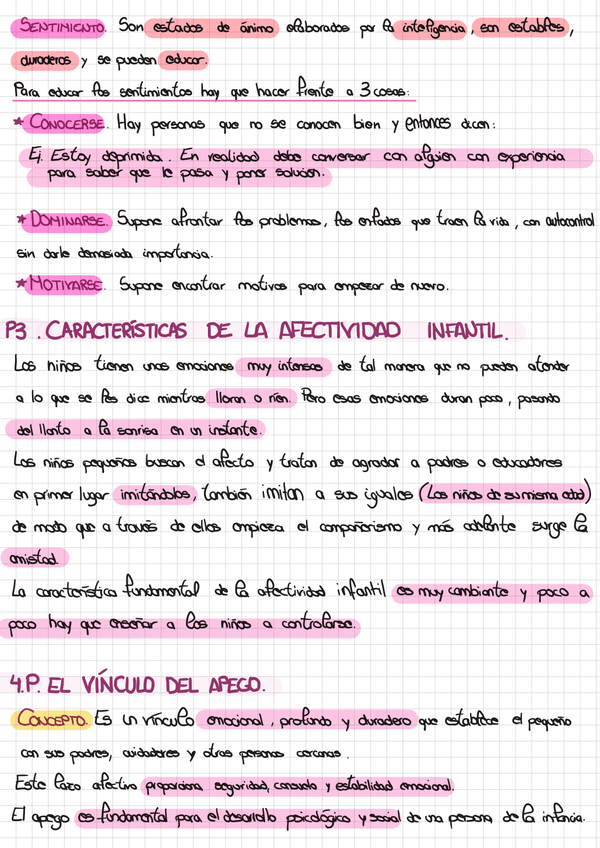 SENTIMIENTO. Son estados de ánimo elaborados por la inteligencia, son estables,
duraderos y se pueden educar.
Para educar los sentimientos hay que hacer frente a 3 cosas:
* CONOCERSE. Hay personas que no se conocen bien y entonces dicen:
Ej. Estoy deprimida. En realidad debe conversar con alguien con experiencia
para saber que le pasa y poner solución.
* DOMINARSE. Supone afrontar los problemas, los enfados que traen la vida, con autocontrol
sin darle demasiada importancia.
* MOTIVARSE. Supone encontrar motivos para empezar de nuevo.
P3. CARACTERÍSTICAS DE LA AFECTIVIDAD INFANTIL.
Los niños tienen unas emociones muy intensas de tal manera que no pueden atender
a lo que se les dice mientras lloran o ríen. Pero esas emociones duran poco, pasando
del llanto a la sonrisa en un instante.
Los niños pequeños buscan el afecto y tratan de agradar a padres o educadores
en primer lugar imitándolos, también imitan a sus iguales (Los niños de su misma edad)
de modo que a través de ellos empieza el compañerismo y más adelante surge la
amistad.
La característica fundamental de la afectividad infantil es muy cambiante y poco a
poco hay que enseñar a los niños a controlarse.
4.P. EL VÍNCULO DEL APEGO.
CONCEPTO. Es un vínculo emocional, profundo y duradero que establece el pequeño
con sus padres, cuidadores y otras personas cercanas.
Este lazo afectivo proporciona seguridad, consuelo y estabilidad emocional.
El apego es fundamental para el desarrollo psicológico y social de una persona de la infancia.